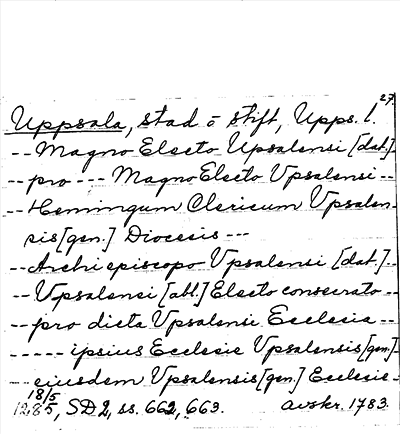 27.
Uppsala, stad o stift, Upps. l.
-- Magno Electo Upsalensi [dat.]
-- pro --- Magno Electo Vpsalensi --
-- Hemingum Clericum Vpsalen-
sis [gen.] Diocesis ---
-- Archiepiscopo Vpsalensi [dat.] --
-- Vpsalensi [abl.] Electo consecrato --
-- pro dicta Vpsalensi Ecclesia --
----- ipsius Ecclesie Vpsalensis [gen.]
-- eiusdem Vpsalensis [gen.] Ecclesie -
18/5
1285, SD 2, ss. 662, 663. avskr. 1783.